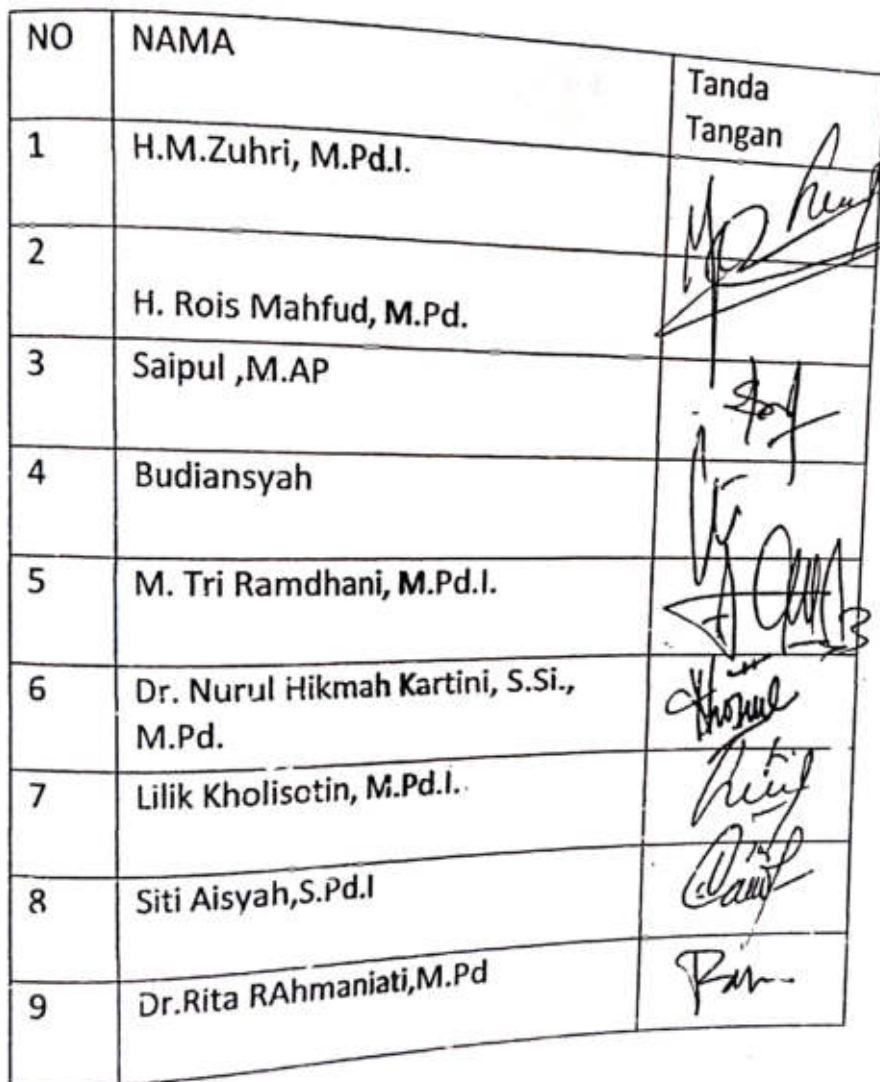 NO NAMA Tanda
Tangan
1 H.M.Zuhri, M.Pd.I.
2
H. Rois Mahfud, M.Pd.
3 Saipul ,M.AP
4 Budiansyah
5 M. Tri Ramdhani, M.Pd.I.
6 Dr. Nurul Hikmah Kartini, S.Si.,
M.Pd.
7 Lilik Kholisotin, M.Pd.I.
8 Siti Aisyah,S.Pd.I
9 Dr.Rita RAhmaniati,M.Pd